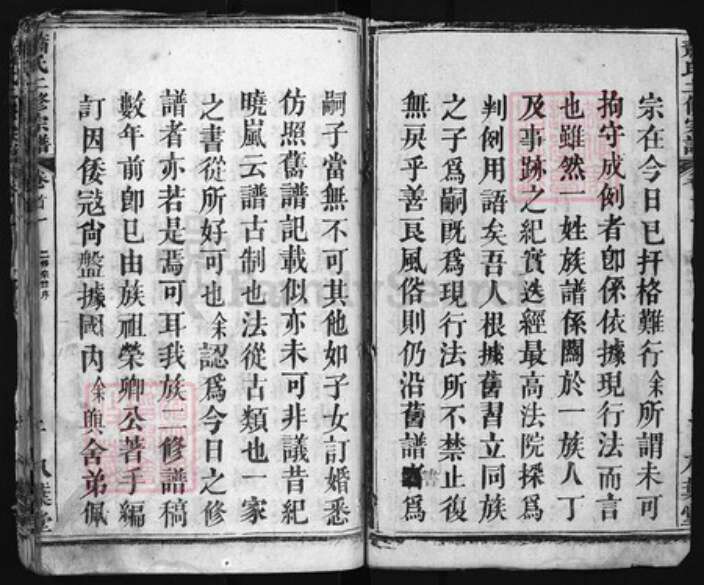 宗在今日已扞格難行余所謂未可
拘守成例者卽係依據現行法而言
也雖然一姓族譜係關於一族人丁
及事跡之紀實迭經最高法院採爲
判例用語矣吾人根據舊習立同族
之子爲嗣旣爲現行法所不禁止復
無戾乎善良風俗則仍沿舊譜書爲
嗣子當無不可其他如子女訂婚悉
仿照舊譜記載似亦未可非議昔紀
曉嵐云譜古制也法從古類也一家
之書從所好可也余認爲今日之修
譜者亦若是焉可耳我族二修譜稿
數年前卽已由族祖榮卿公著手編
訂因倭寇尙盤據國內余與舍弟佩
蕭氏二修宗譜 卷首
八葉堂